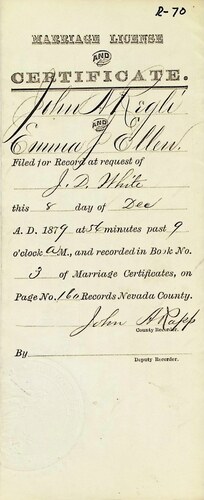 R-70
MARRIAGE LICENSE
AND
CERTIFICATE.
John A Regli
AND
Emma J Ellen.
Filed for Record at request of
J. D. White
this 8 day of Dec
A. D. 1879 at 56 minutes past 9
o'clock a M., and recorded in Book No.
3 of Marriage Certificates, on
Page No. 160 Records Nevada County.
John A Rapp
County Recorder.
By
Deputy Recorder.